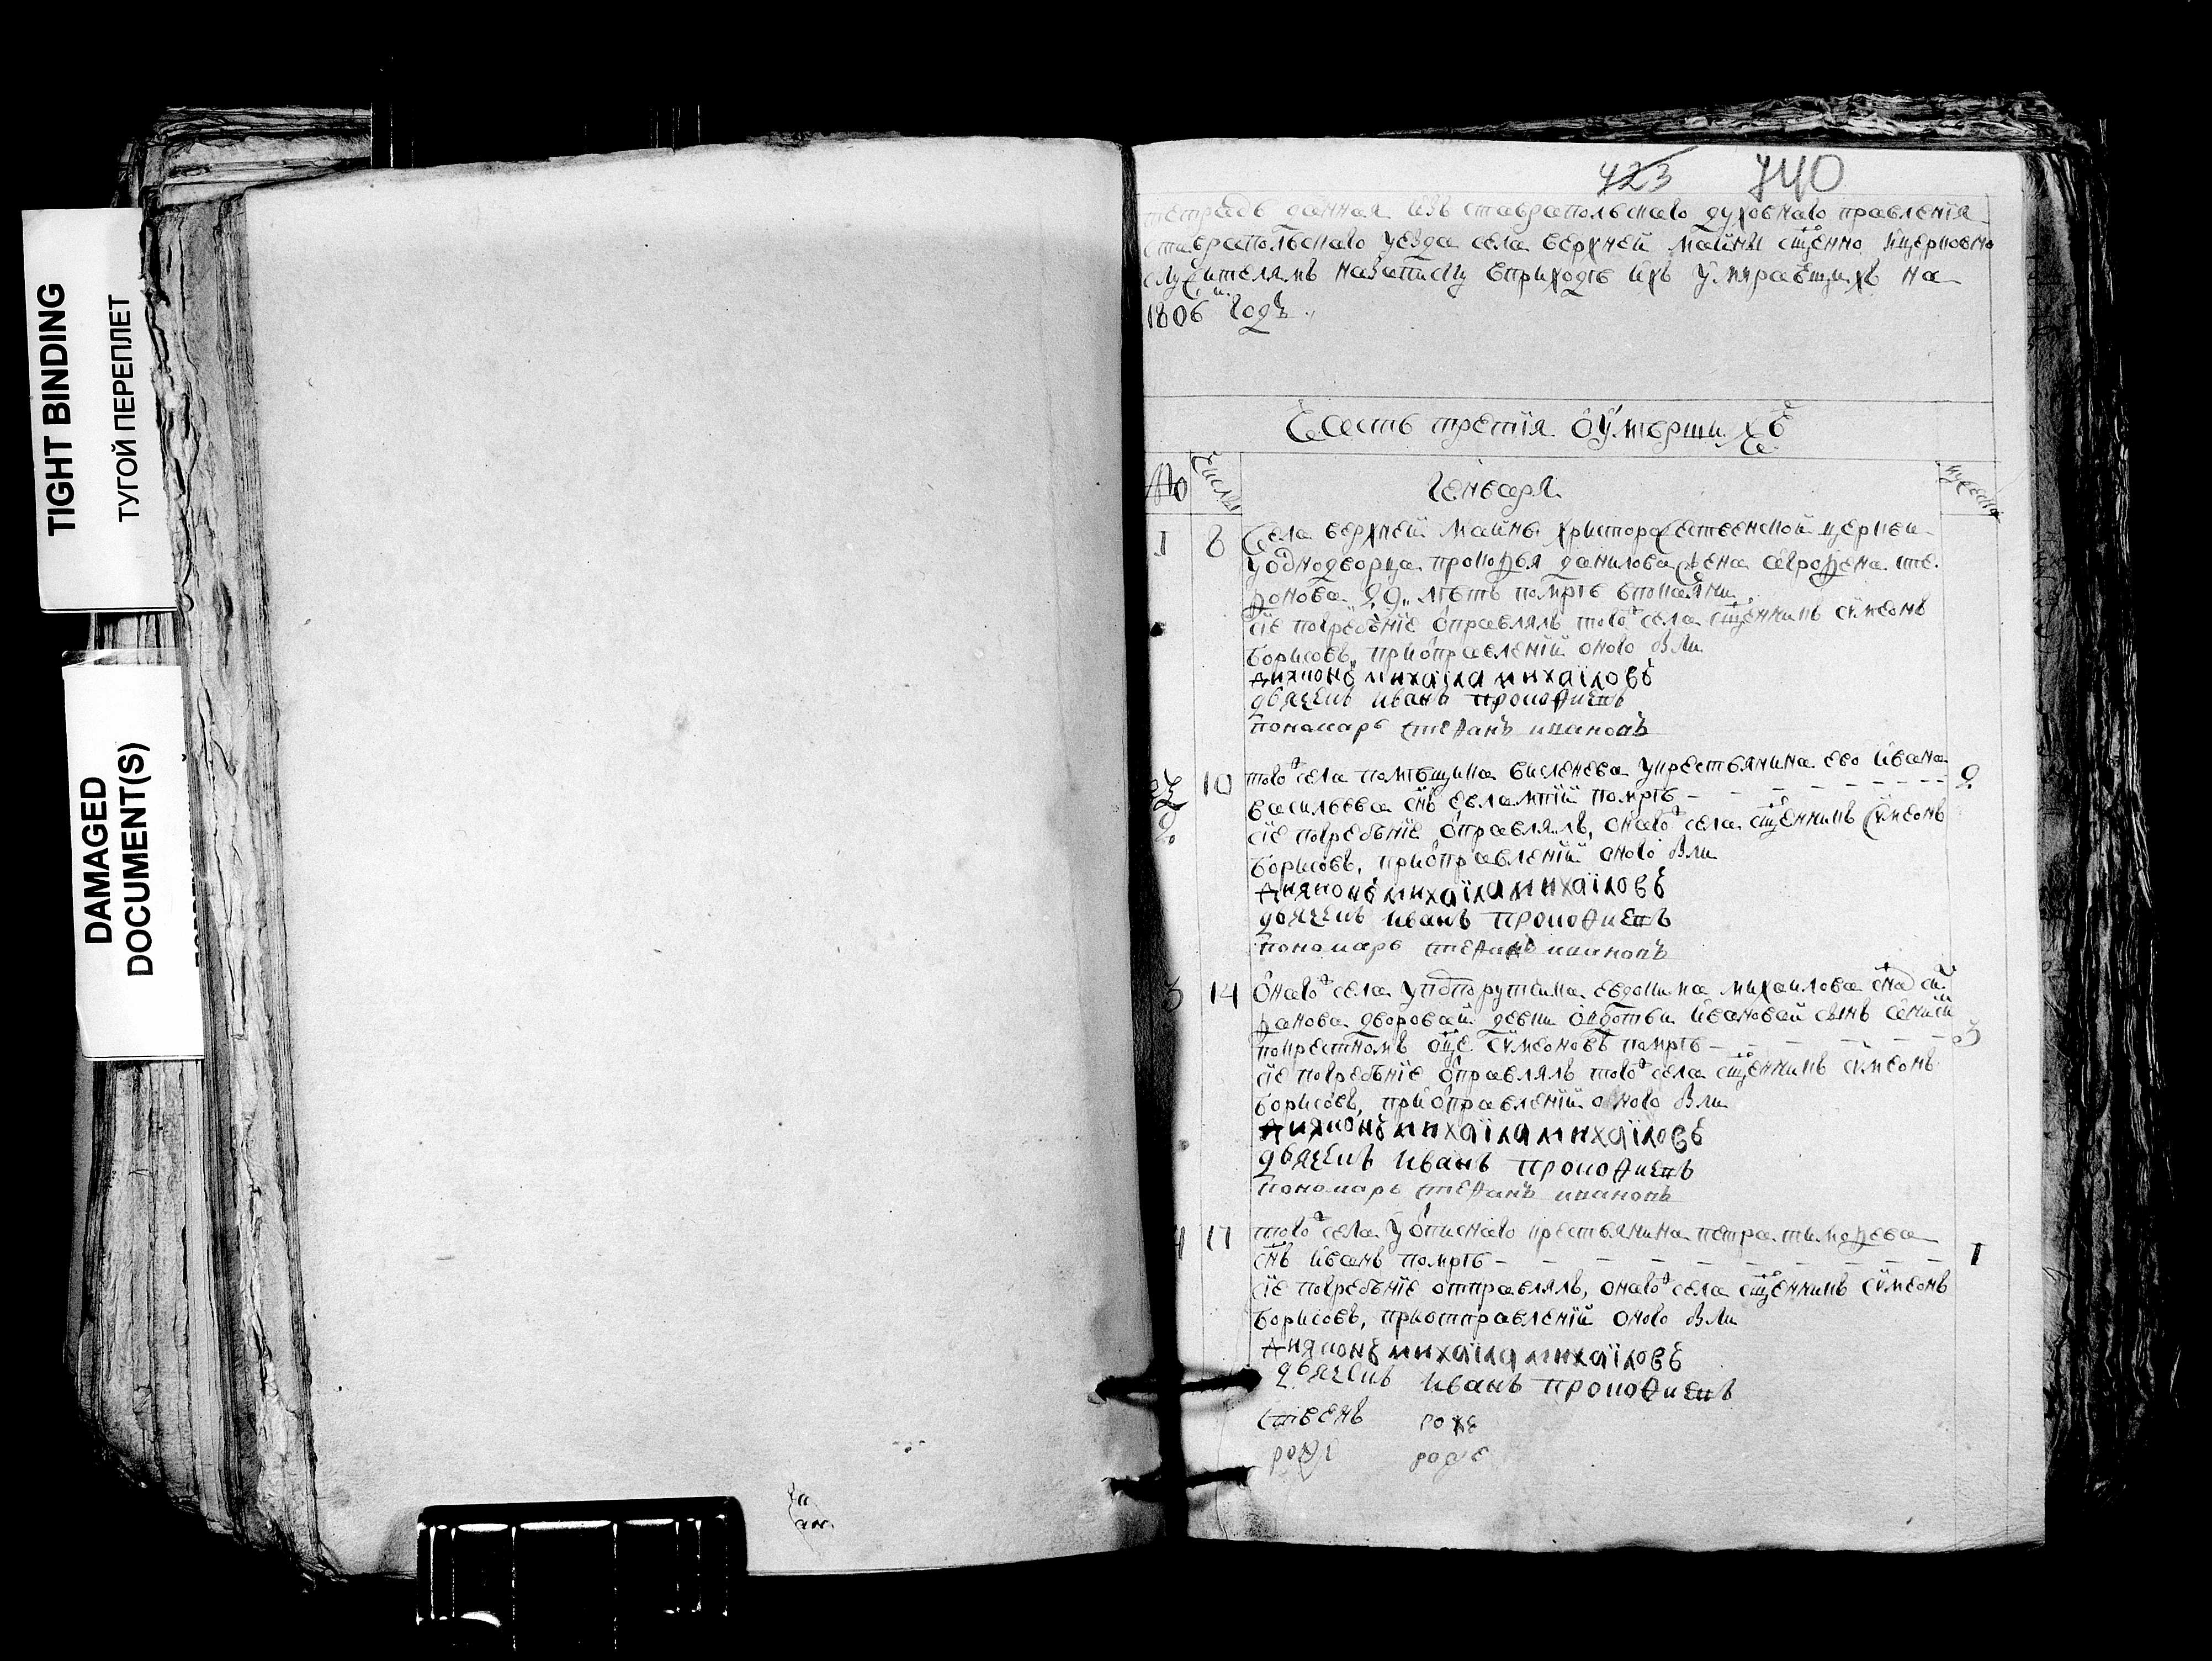 TIGHT BINDING
ТУГОЙ ПЕРЕПЛЕТ
DAMAGED
DOCUMENT(S)
423 740
тетрадь данная изъ ставрапольскаго духовнаго правленія
ставрапольскаго уезда села верхней майны сщенно ицерковно
служителямъ назаписку вприходѣ ихъ умираѣщихъ на
1806 годъ
Часть третія оумѣршихъ
№ числы Генваря мужеска
1 8 Села верхней майны христораждественской церкви
уоднодворца прокофья данилова жена аѳрофена сте
фанова 29 лѣтъ помрѣ
сіе погребѣніе оправлялъ того села сщенникъ сѵмеонъ
борисовъ, приоправленіи оного были
дияконъ михаіла михаіловъ
дьячекъ иванъ прокофиевъ
пономарь стефанъ ивановъ
2 10 того села помѣщика висленева укрестьянина ево ивана 2
васильева снъ евлампій помрѣ
сіе погребѣніе оправлялъ, онаго села сщенникъ сѵмеонъ
борисовъ, приоправленіи оного были
дияконъ михаіла михаіловъ
дьячекъ иванъ прокофиевъ
пономарь стефанъ ивановъ
3 14 Онаго села уподпорутчика евдокима михаилова сна
дворовай девки ивановай сынъ
покрестномъ оце сѵмеоновъ помрѣ 3
сіе погребѣніе оправлялъ того села сщенникъ сѵмеонъ
борисовъ, приоправленіи оного были
дияконъ михаіла михаіловъ
дьячекъ иванъ прокофиевъ
пономарь стефанъ ивановъ
4 17 того села уописнаго крестьянина петра тимофева
снъ иванъ помрѣ 1
сіе погребѣніе отправлялъ, онаго села сщенникъ сѵмеонъ
борисовъ, приотправленіи оного были
дияконъ михаіла михаіловъ
дьячекъ иванъ прокофиевъ